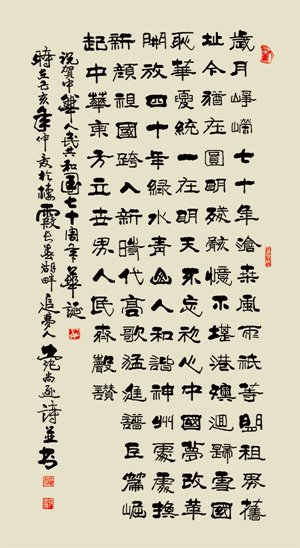 歲月崢嶸七十年滄桑風雨祇等租界舊
址今猶在圓明殘骸憶不堪港澳迴歸雪國
恥華夏統一在明天不忘初心中國夢改革
開放四十年綠水青山人和諧神州處處換
新顏祖國跨入新時代高歌猛進譜巨篇崛
起中華東方立世界人民齊聲讚
祝賀中華人民共和國七十周年華誕
時在己亥年仲夏於棲霞長春湖畔追夢人尚逐詩並書